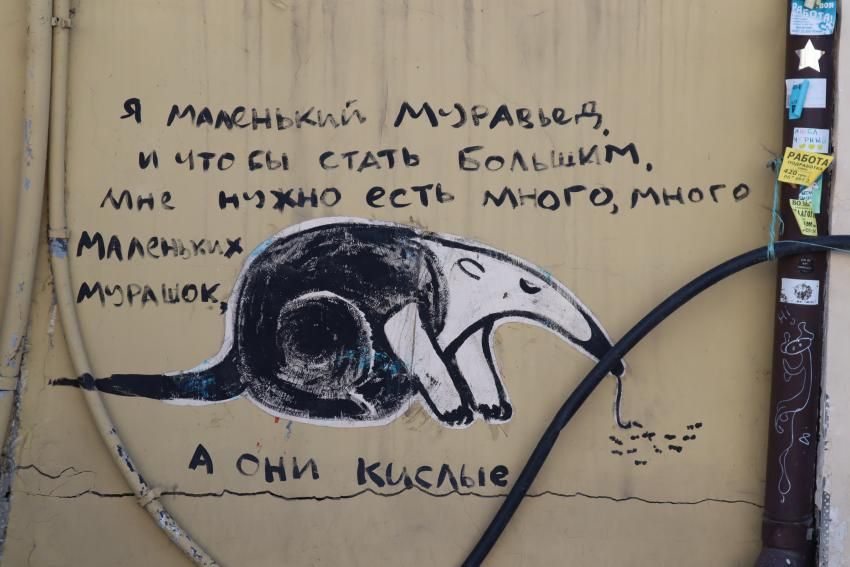 Я МАЛЕНЬКИЙ МУРАВЬЕД,
И ЧТО БЫ СТАТЬ БОЛЬШИМ,
МНЕ НУЖНО ЕСТЬ МНОГО, МНОГО
МАЛЕНЬКИХ
МУРАШОК,
А ОНИ КИСЛЫЕ
РАБОТА!
РАБОТА
ПОДРАБОТКА
420